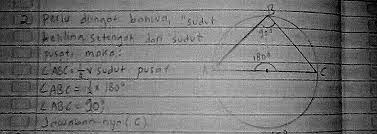 2 Perlu diingat bahwa, "sudut
keliling setengah dari sudut
pusat, maka:
∠ABC = ½ x sudut pusat
∠ABC = ½ x 180°
∠ABC = 90°
Jawaban-nya (C)
B
90°
180°
A
C